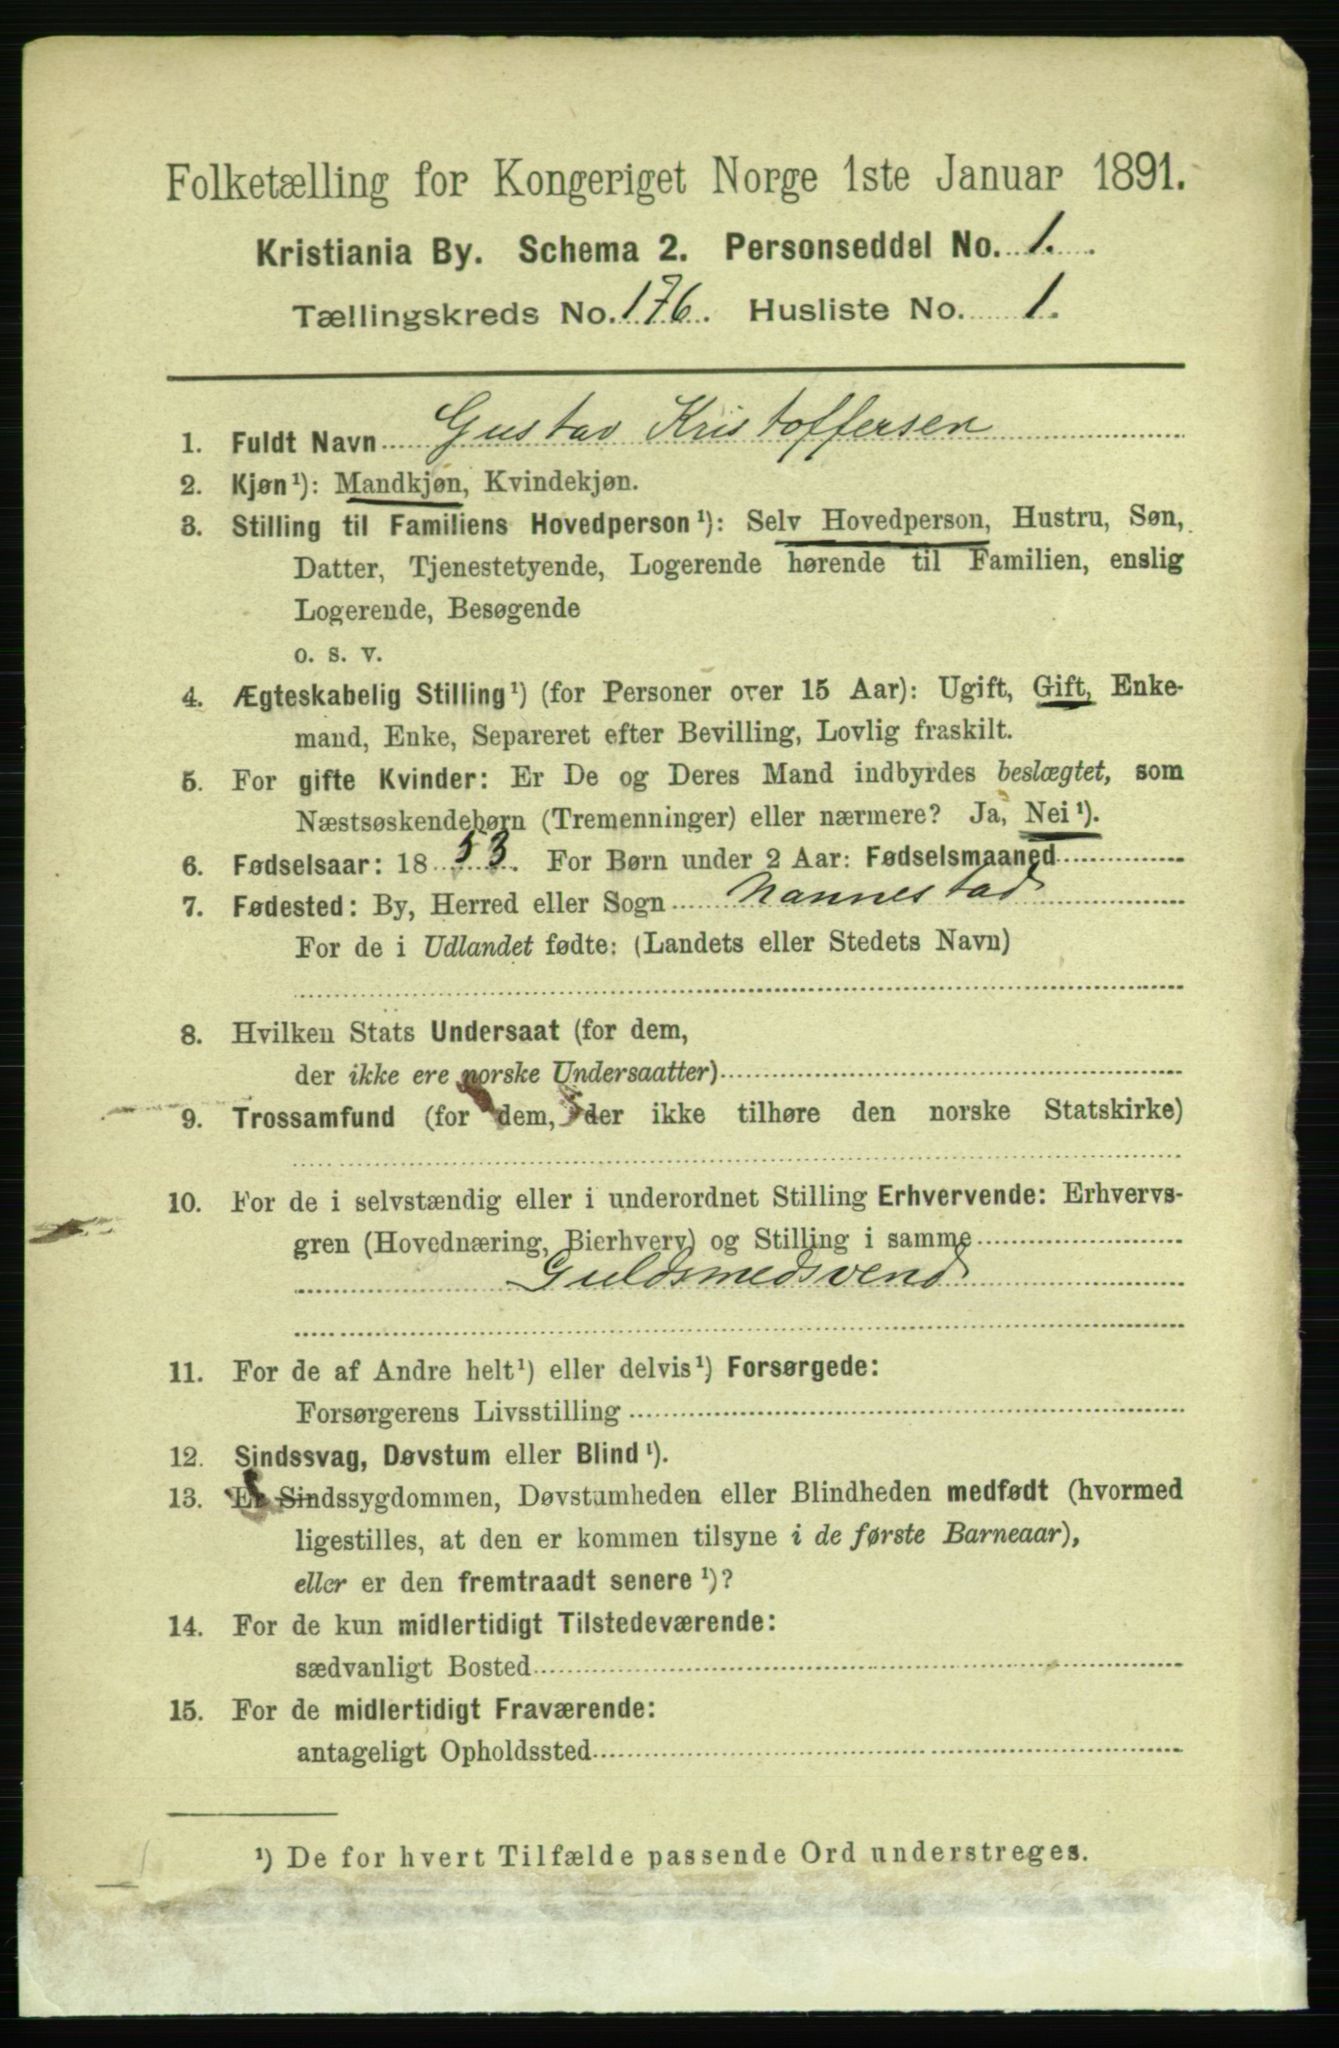 Folketælling for Kongeriget Norge 1ste Januar 1891.
Kristiania By. Schema 2. Personseddel No. 1.
Tællingskreds No. 176. Husliste No. 1.
1. Fuldt Navn Gustav Kristoffersen
2. Kjøn¹): Mandkjøn, Kvindekjøn.
3. Stilling til Familiens Hovedperson¹): Selv Hovedperson, Hustru, Søn,
Datter, Tjenestetyende, Logerende hørende til Familien, enslig
Logerende, Besøgende
o. s. v.
4. Ægteskabelig Stilling¹) (for Personer over 15 Aar): Ugift, Gift, Enke-
mand, Enke, Separeret efter Bevilling, Lovlig fraskilt.
5. For gifte Kvinder: Er De og Deres Mand indbyrdes beslægtet, som
Næstsøskendebørn (Tremenninger) eller nærmere? Ja, Nei¹).
6. Fødselsaar: 1853. For Børn under 2 Aar: Fødselsmaaned
7. Fødested: By, Herred eller Sogn Nannestad
For de i Udlandet fødte: (Landets eller Stedets Navn)
8. Hvilken Stats Undersaat (for dem,
der ikke ere norske Undersaatter)
9. Trossamfund (for dem, der ikke tilhøre den norske Statskirke)
10. For de i selvstændig eller i underordnet Stilling Erhvervende: Erhvervs-
gren (Hovednæring, Bierhverv) og Stilling i samme
Guldsmedsvend
11. For de af Andre helt¹) eller delvis¹) Forsørgede:
Forsørgerens Livsstilling
12. Sindssvag, Døvstum eller Blind¹).
13. Er Sindssygdommen, Døvstumheden eller Blindheden medfødt (hvormed
ligestilles, at den er kommen tilsyne i de første Barneaar),
eller er den fremtraadt senere¹)?
14. For de kun midlertidigt Tilstedeværende:
sædvanligt Bosted
15. For de midlertidigt Fraværende:
antageligt Opholdssted
¹) De for hvert Tilfælde passende Ord understreges.